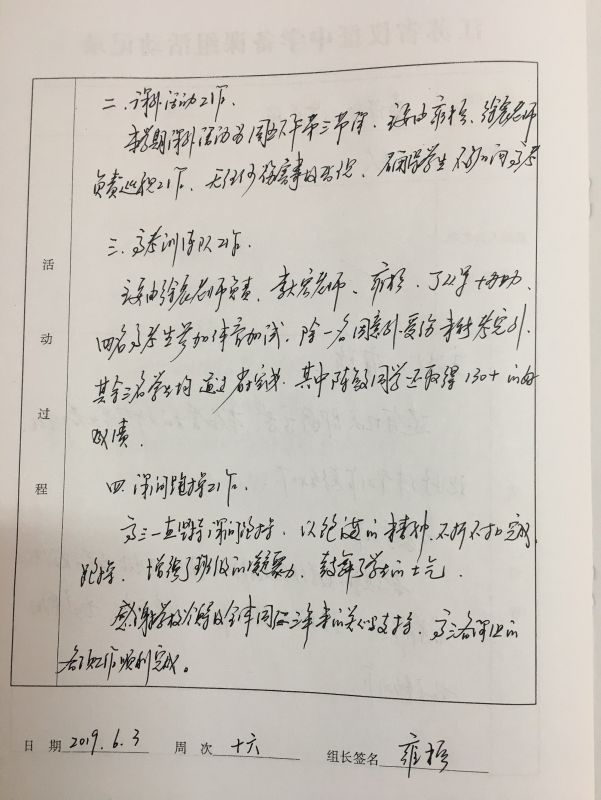 二、课外活动工作.
本学期课外活动为周五下午第三节课、主要由雍栢、徐宏老师
负责巡视工作、无任何伤害事故出现、确保学生不影响高考
三、高考训练队工作.
主要由徐宏老师负责、李大宏老师、雍栢、丁以军协助、
四名高考学生参加体育加试、除一名因意外受伤未能考完外、
其余三名学生均通过省专业线、其中陈毅同学还取得130+的好
成绩.
四、课间跑操工作.
高三一直坚持课间跑操、以饱满的精神、不折不扣完成
跑操、增强了班级的凝聚力、鼓舞了学生的士气.
感谢学校领导及全体同仁三年来的关心与支持、高三备课组的
各项工作顺利完成。
活动过程
日期 2019.6.3 周次 十六 组长签名 雍栢